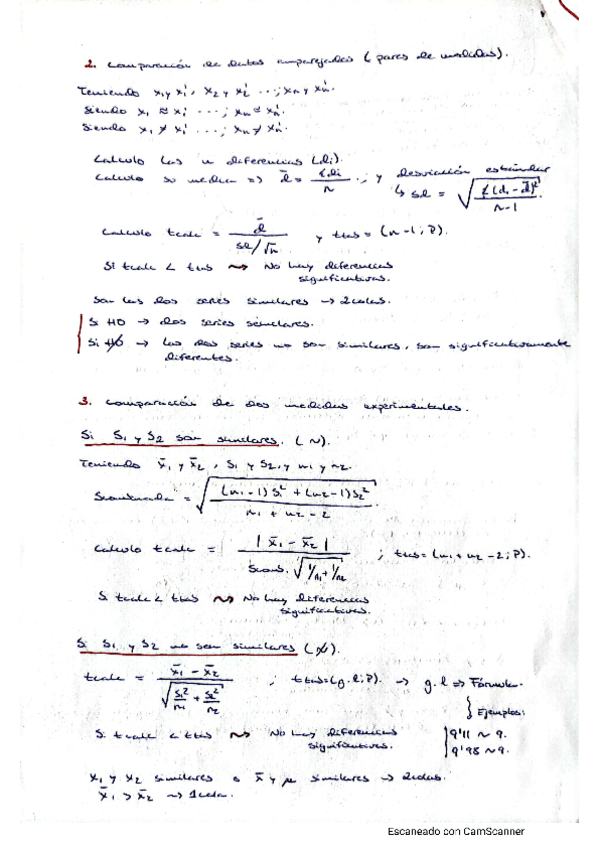 2. Comparación de datos emparejados (pares de medidas).
Teniendo x₁ y x₁', x₂ y x₂' ...; xₙ y xₙ'.
Siendo x₁ ≈ x₁' ...; xₙ ≈ xₙ'.
Siendo x₁ ≠ x₁' ...; xₙ ≠ xₙ'.
Calculo las n diferencias (di).
Calculo su media => d̄ = Σdi / n ; y desviación estándar
↳ sd = √(Σ(di - d̄)² / n-1).
Calculo tcalc = d̄ / (sd/√n) y ttab = (n-1; P).
Si tcalc < ttab ⇝ No hay diferencias
significativas.
Son las dos series similares → 2 colas.
Si H0 → dos series similares.
Si H̸0 → las dos series no son similares, son significativamente
diferentes.
3. Comparación de dos medidas experimentales.
Si S₁ y S₂ son similares. (~)
Teniendo x̄₁ y x̄₂, S₁ y S₂, y n₁ y n₂.
Scombinada = √(((n₁-1)S₁² + (n₂-1)S₂²) / (n₁ + n₂ - 2)).
Calculo tcalc = |x̄₁ - x̄₂| / (Scom. √(1/n₁ + 1/n₂)) ; ttab = (n₁ + n₂ - 2; P).
Si tcalc < ttab ⇝ No hay diferencias
significativas.
Si S₁ y S₂ no son similares (≁).
tcalc = (x̄₁ - x̄₂) / √(S₁²/n₁ + S₂²/n₂) ; ttab = (g.l; P). → g.l => Fórmula.
Ejemplos:
Si tcalc < ttab ⇝ No hay diferencias
significativas.
9'11 ~ 9.
9'98 ~ 9.
x₁ y x₂ similares o x̄ y μ similares → 2 colas.
x̄₁ > x̄₂ → 1 cola.
Escaneado con CamScanner